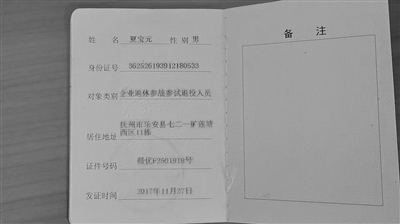 姓 名 夏宝元 性 别 男
身份证号 362526193912180533
对象类别 企业退休参战参试退役人员
抚州市乐安县七二一矿莲塘
居住地址 西区11栋
证件号码 赣优F2501919号
发证时间 2017年11月27日
备 注